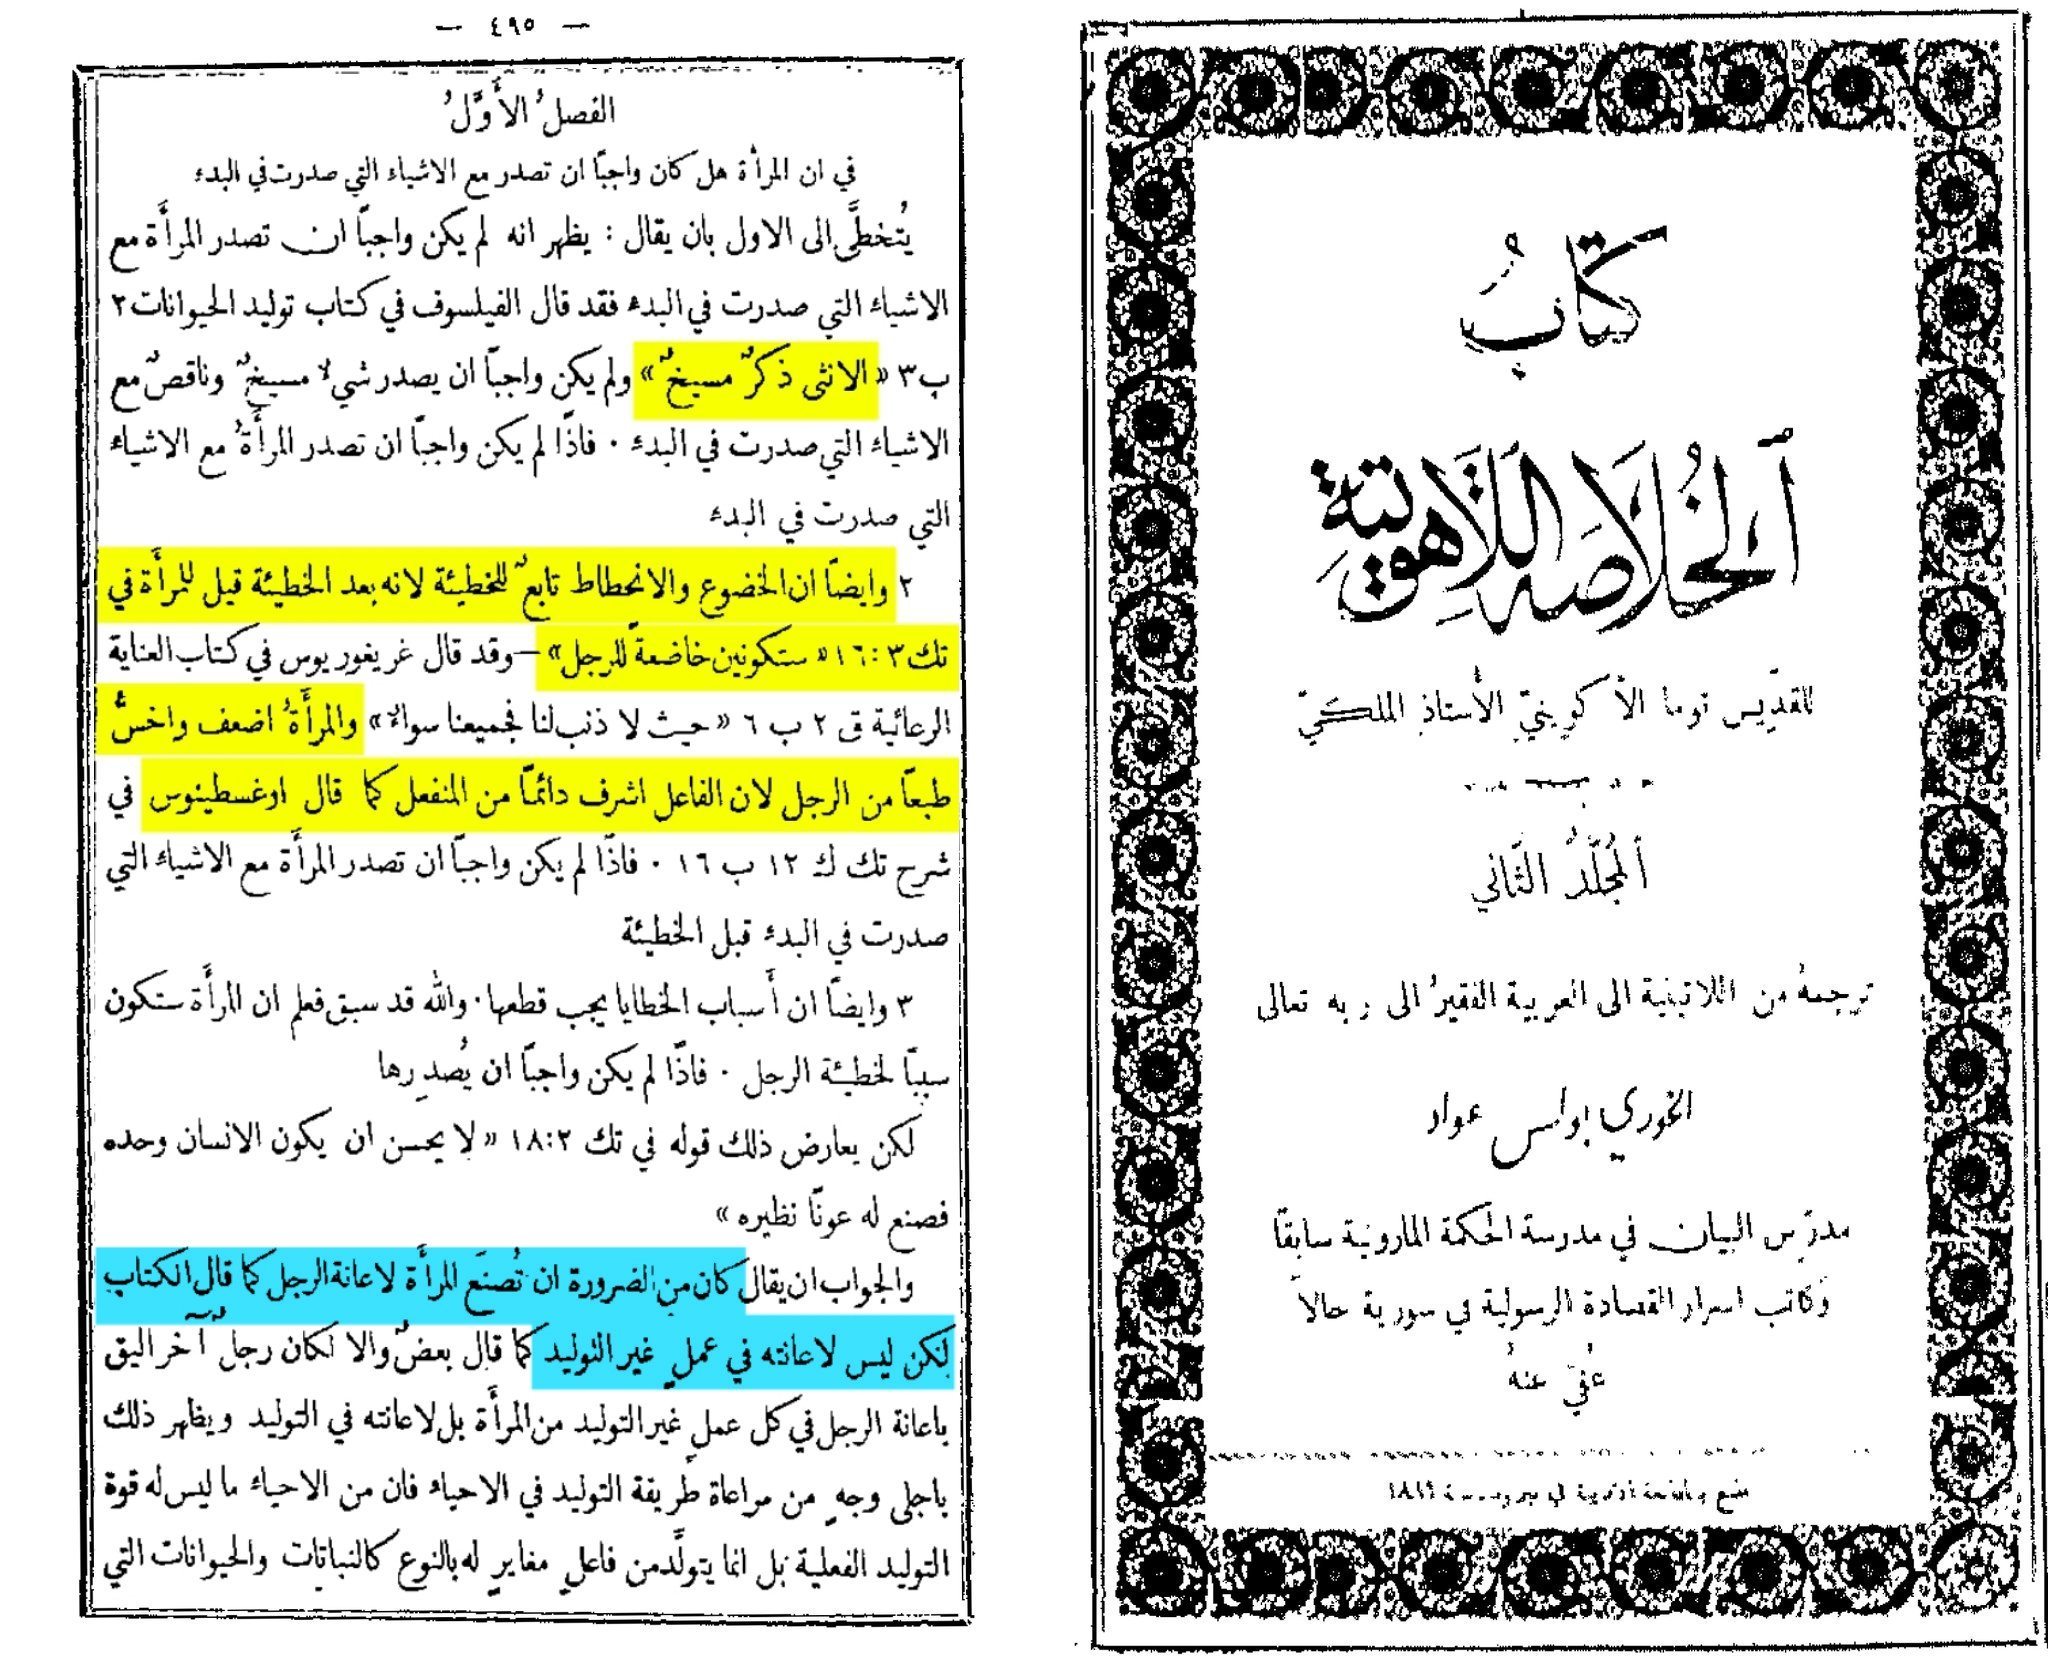 — ٤٩٥ —
الفصلُ الأَوَّلُ
في ان المرأة هل كان واجبًا ان تصدر مع الاشياء التي صدرت في البدء
يُتخطَّى الى الاول بان يقال : يظهر انه لم يكن واجبًا ان تصدر المرأَة مع
الاشياء التي صدرت في البدء فقد قال الفيلسوف في كتاب توليد الحيوانات ٢
ب ٣ « الانثى ذكرٌ مسيخٌ » ولم يكن واجبًا ان يصدر شيءٌ مسيخٌ وناقصٌ مع
الاشياء التي صدرت في البدء . فاذًا لم يكن واجبًا ان تصدر المرأَةُ مع الاشياء
التي صدرت في البدء
٢ وايضًا ان الخضوع والانحطاط تابعٌ للخطيئة لانه بعد الخطيئة قيل للمرأَة في
تك ٣ : ١٦ « ستكونين خاضعةً للرجل » – وقد قال غريغوريوس في كتاب العناية
الرعائية ق ٢ ب ٦ « حيث لا ذنب لنا فجميعنا سوالا » والمرأَةُ اضعف واخسُّ
طبعًا من الرجل لان الفاعل اشرف دائمًا من المنفعل كما قال اوغسطينوس في
شرح تك ك ١٢ ب ١٦ . فاذًا لم يكن واجبًا ان تصدر المرأَة مع الاشياء التي
صدرت في البدء قبل الخطيئة
٣ وايضًا ان أَسباب الخطايا يجب قطعها . والله قد سبق فعلم ان المرأَة ستكون
سببًا لخطيئة الرجل . فاذًا لم يكن واجبًا ان يُصدِرها
لكن يعارض ذلك قوله في تك ٢ : ١٨ « لا يحسن ان يكون الانسان وحده
فصنع له عونًا نظيره »
والجواب ان يقال كان من الضرورة ان تُصنَع المرأَة لاعانة الرجل كما قال الكتاب
لكن ليس لاعانته في عملٍ غير التوليد كما قال بعضٌ والا لكان رجلٌ آخر اليق
باعانة الرجل في كل عملٍ غير التوليد من المرأَة بل لاعانته في التوليد ويظهر ذلك
باجلى وجهٍ من مراعاة طريقة التوليد في الاحياء فان من الاحياء ما ليس له قوة
التوليد الفعلية بل انما يتولَّد من فاعلٍ مغايرٍ له بالنوع كالنباتات والحيوانات التي
كتابُ
اَلخُلَاصَة اللَّاهُوتيَّة
للقدّيس توما الأكوينيّ الأستاذ الملكيّ
اَلمُجلَّدُ الثَّاني
ترجمهُ من اللاتينية الى العربية الفقيرُ الى ربه تعالى
الخوري بولس عواد
مدرّس البيان في مدرسة الحكمة المارونية سابقًا
وكاتب اسرار القصادة الرسولية في سورية حالاً
عُفيَ عنهُ
طبع بالمطبعة الادبية في بيروت سنة